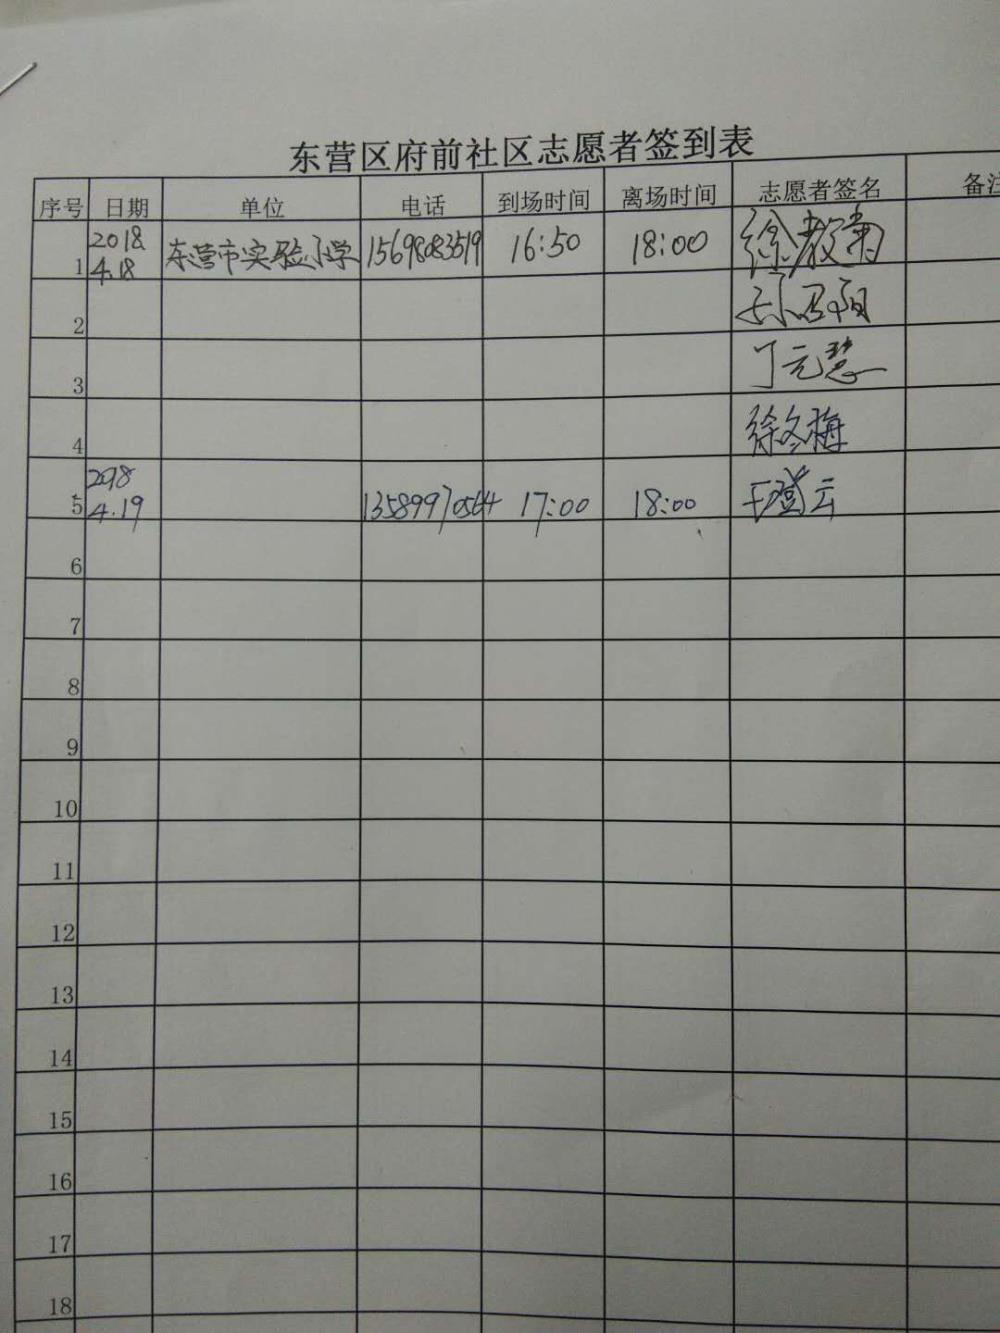 东营区府前社区志愿者签到表
序号 日期 单位 电话 到场时间 离场时间 志愿者签名 备注
1 2018 4.18 东营市实验小学 15698083519 16:50 18:00 徐教菊
2
3 丁元慧
4 徐冬梅
5 2018 4.19 13589970564 17:00 18:00 王登云
6
7
8
9
10
11
12
13
14
15
16
17
18